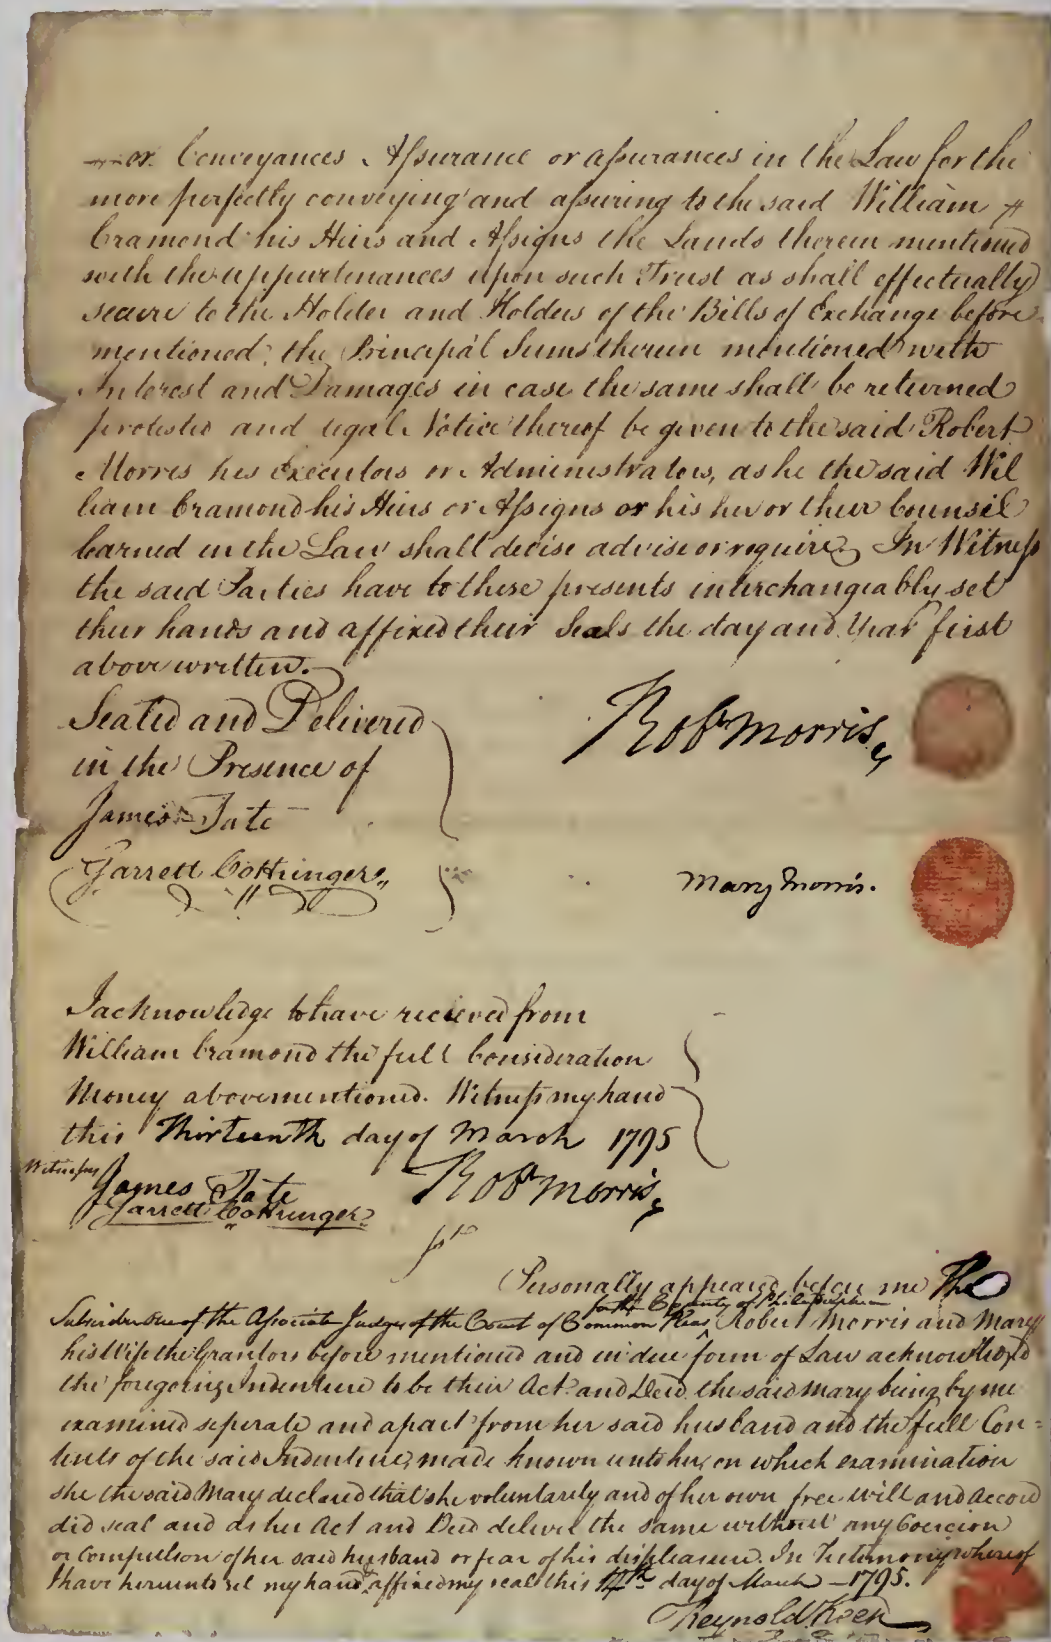 or Conveyances Assurance or assurances in the Law for the
more perfectly conveying and assuring to the said William
Cramond his Heirs and Assigns the Lands therein mentioned
with the appurtenances upon such Trust as shall effectually
secure to the Holder and Holders of the Bills of Exchange before
mentioned, the Principal Sums therein mentioned with
Interest and Damages in case the same shall be returned
protested and legal Notice thereof be given to the said Robert
Morris his Executors or Administrators, as he the said Wil
liam Cramond his Heirs or Assigns or his her or their Counsil
learned in the Law shall devise advise or require. In Witness
the said Parties have to these presents interchangeably set
their hands and affixed their Seals the day and Year first
above written.
Sealed and Delivered
in the Presence of
James Tate
Garrett Cottringer
Robt Morris
Mary Morris.
I acknowledge to have recieved from
William Cramond the full Consideration
Money abovementioned. Witness my hand
this Thirteenth day of March 1795
Witness
James Tate
Garrett Cottringer
Robt Morris
Personally appeared before me The
for the County of Philadelphia
Subscriber one of the Associate Judges of the Court of Common Pleas ^ Robert Morris and Mary
his Wife the Grantors before mentioned and in due form of Law acknowledged
the foregoing Indenture to be their Act and Deed, the said Mary being by me
examined seperate and apart from her said husband and the full Con=
tents of the said Indenture made known unto her, on which examination
she the said Mary declared that she voluntarily and of her own free Will and Accord
did seal and as her Act and Deed deliver the same without any Coercion
or Compulsion of her said husband or fear of his displeasure. In Testimony whereof
I have hereunto set my hand & affixed my seal this 14th day of March 1795.
Reynold Keen